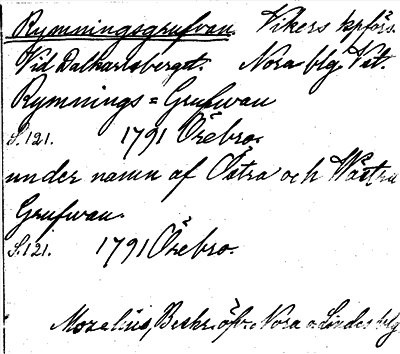 Rymningsgrufvan. Vikers kpförs.
Vid Dalkarlsberget. Nora blg. Vst.
Rymnings=Grufwan
S.121. 1791 Örebro.
under namn af Östra och Wästra
Grufwan.
S.121. 1791 Örebro.
Mozelius, Beskr. öfv. Nora o. Lindes blg